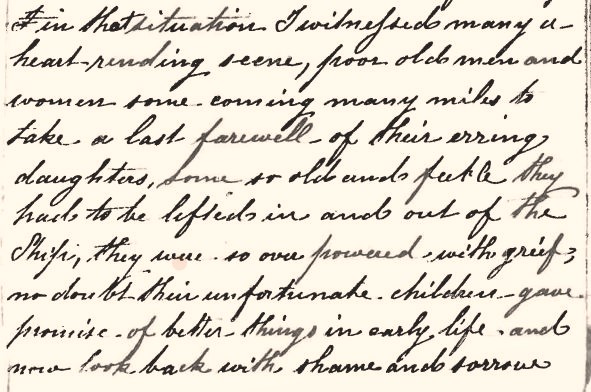 & in that situation I witnessed many a
heart-rending scene, poor old men and
women some coming many miles to
take a last farewell of their erring
daughters, some so old and feeble they
had to be lifted in and out of the
Ship, they were so over powered with grief;
no doubt their unfortunate children gave
promise of better things in early life and
now look back with shame and sorrow